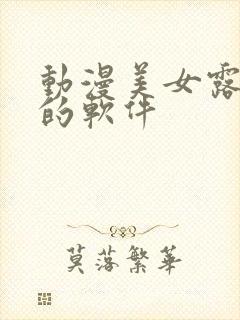 動漫美女露
的軟件
莫落繁華